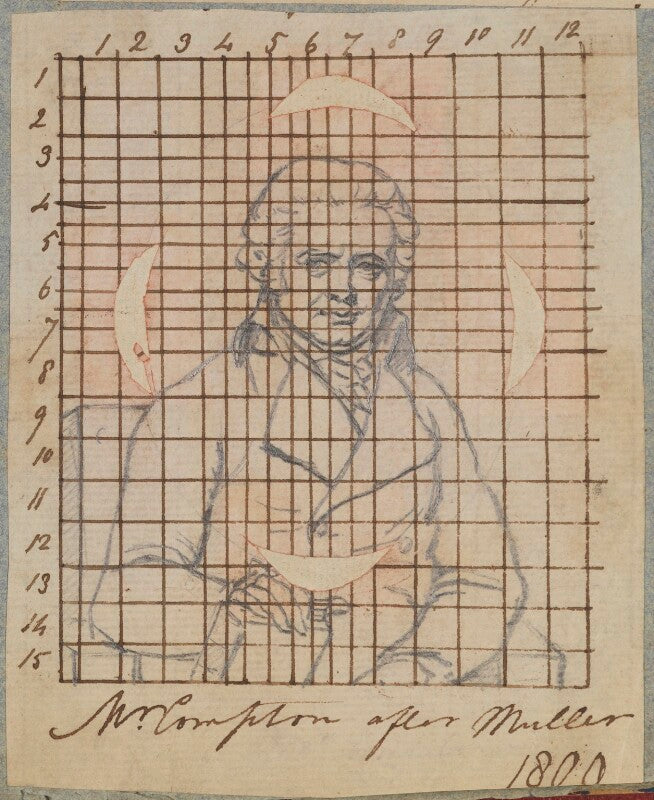 1 2 3 4 5 6 7 8 9 10 11 12
1
2
3
4
5
6
7
8
9
10
11
12
13
14
15
Mr. Compton after Muller
1800